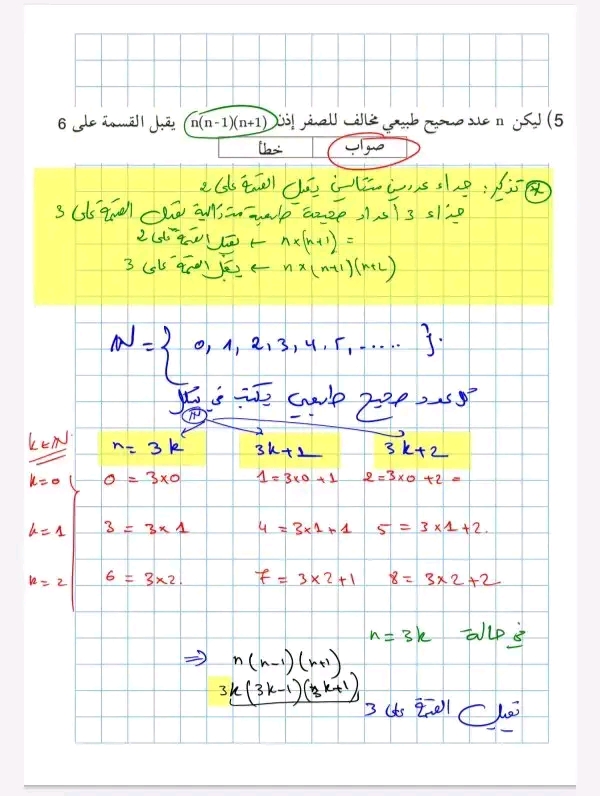 5) ليكن n عدد صحيح طبيعي مخالف للصفر إذن n(n-1)(n+1) يقبل القسمة على 6
صواب خطأ
* تذكير: جداء عددين متتاليين يقبل القسمة على 2
جداء 3 أعداد صحيحة طبيعية متتالية يقبل القسمة على 3
= n×(n+1) ← يقبل القسمة على 2
n×(n+1)(n+2) ← يقبل القسمة على 3
ℕ = { 0, 1, 2, 3, 4, 5, ..... }.
كل عدد صحيح طبيعي يكتب في شكل
ℕ
k∈ℕ n = 3k 3k+1 3k+2
k=0 0 = 3×0 1 = 3×0+1 2 = 3×0+2 =
k=1 3 = 3×1 4 = 3×1+1 5 = 3×1+2.
k=2 6 = 3×2. 7 = 3×2+1 8 = 3×2+2
في حالة n = 3k
⇒ n(n-1)(n+1)
3k(3k-1)(3k+1)
تقبل القسمة على 3